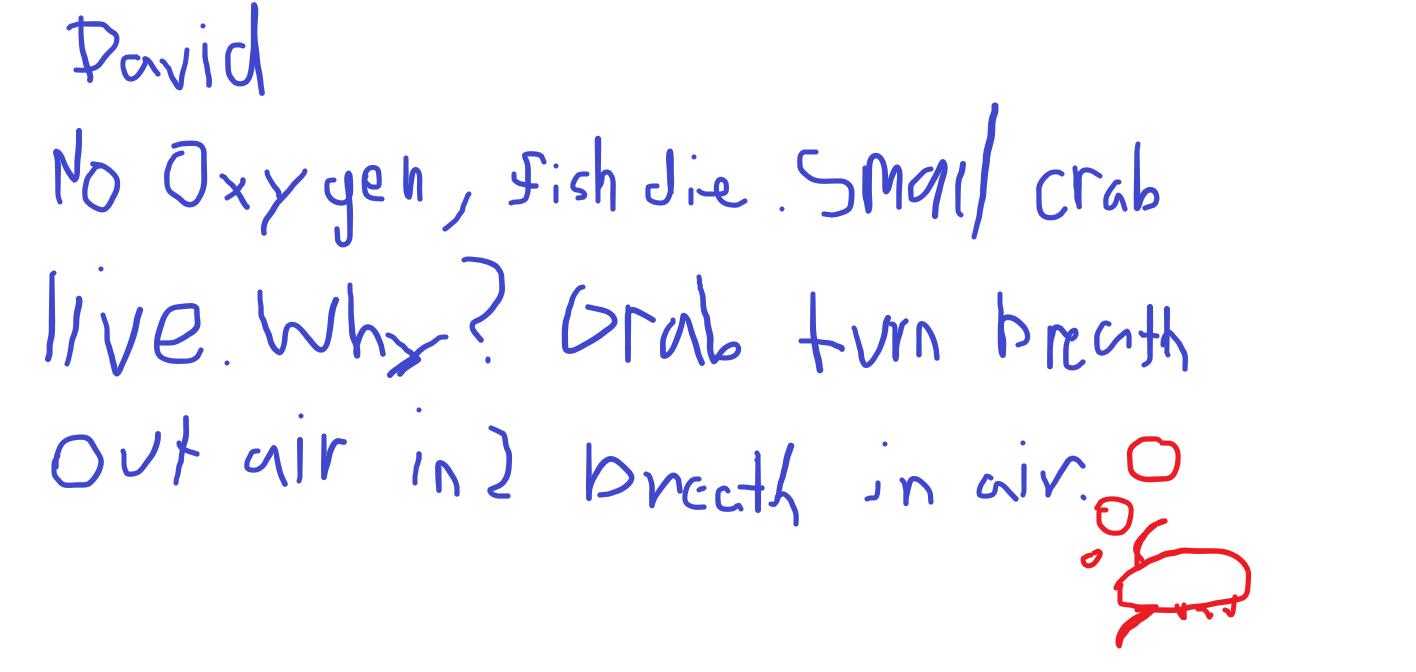 David
No Oxygen, fish die. Small crab
live. Why? Crab turn breath
out air in2 breath in air.